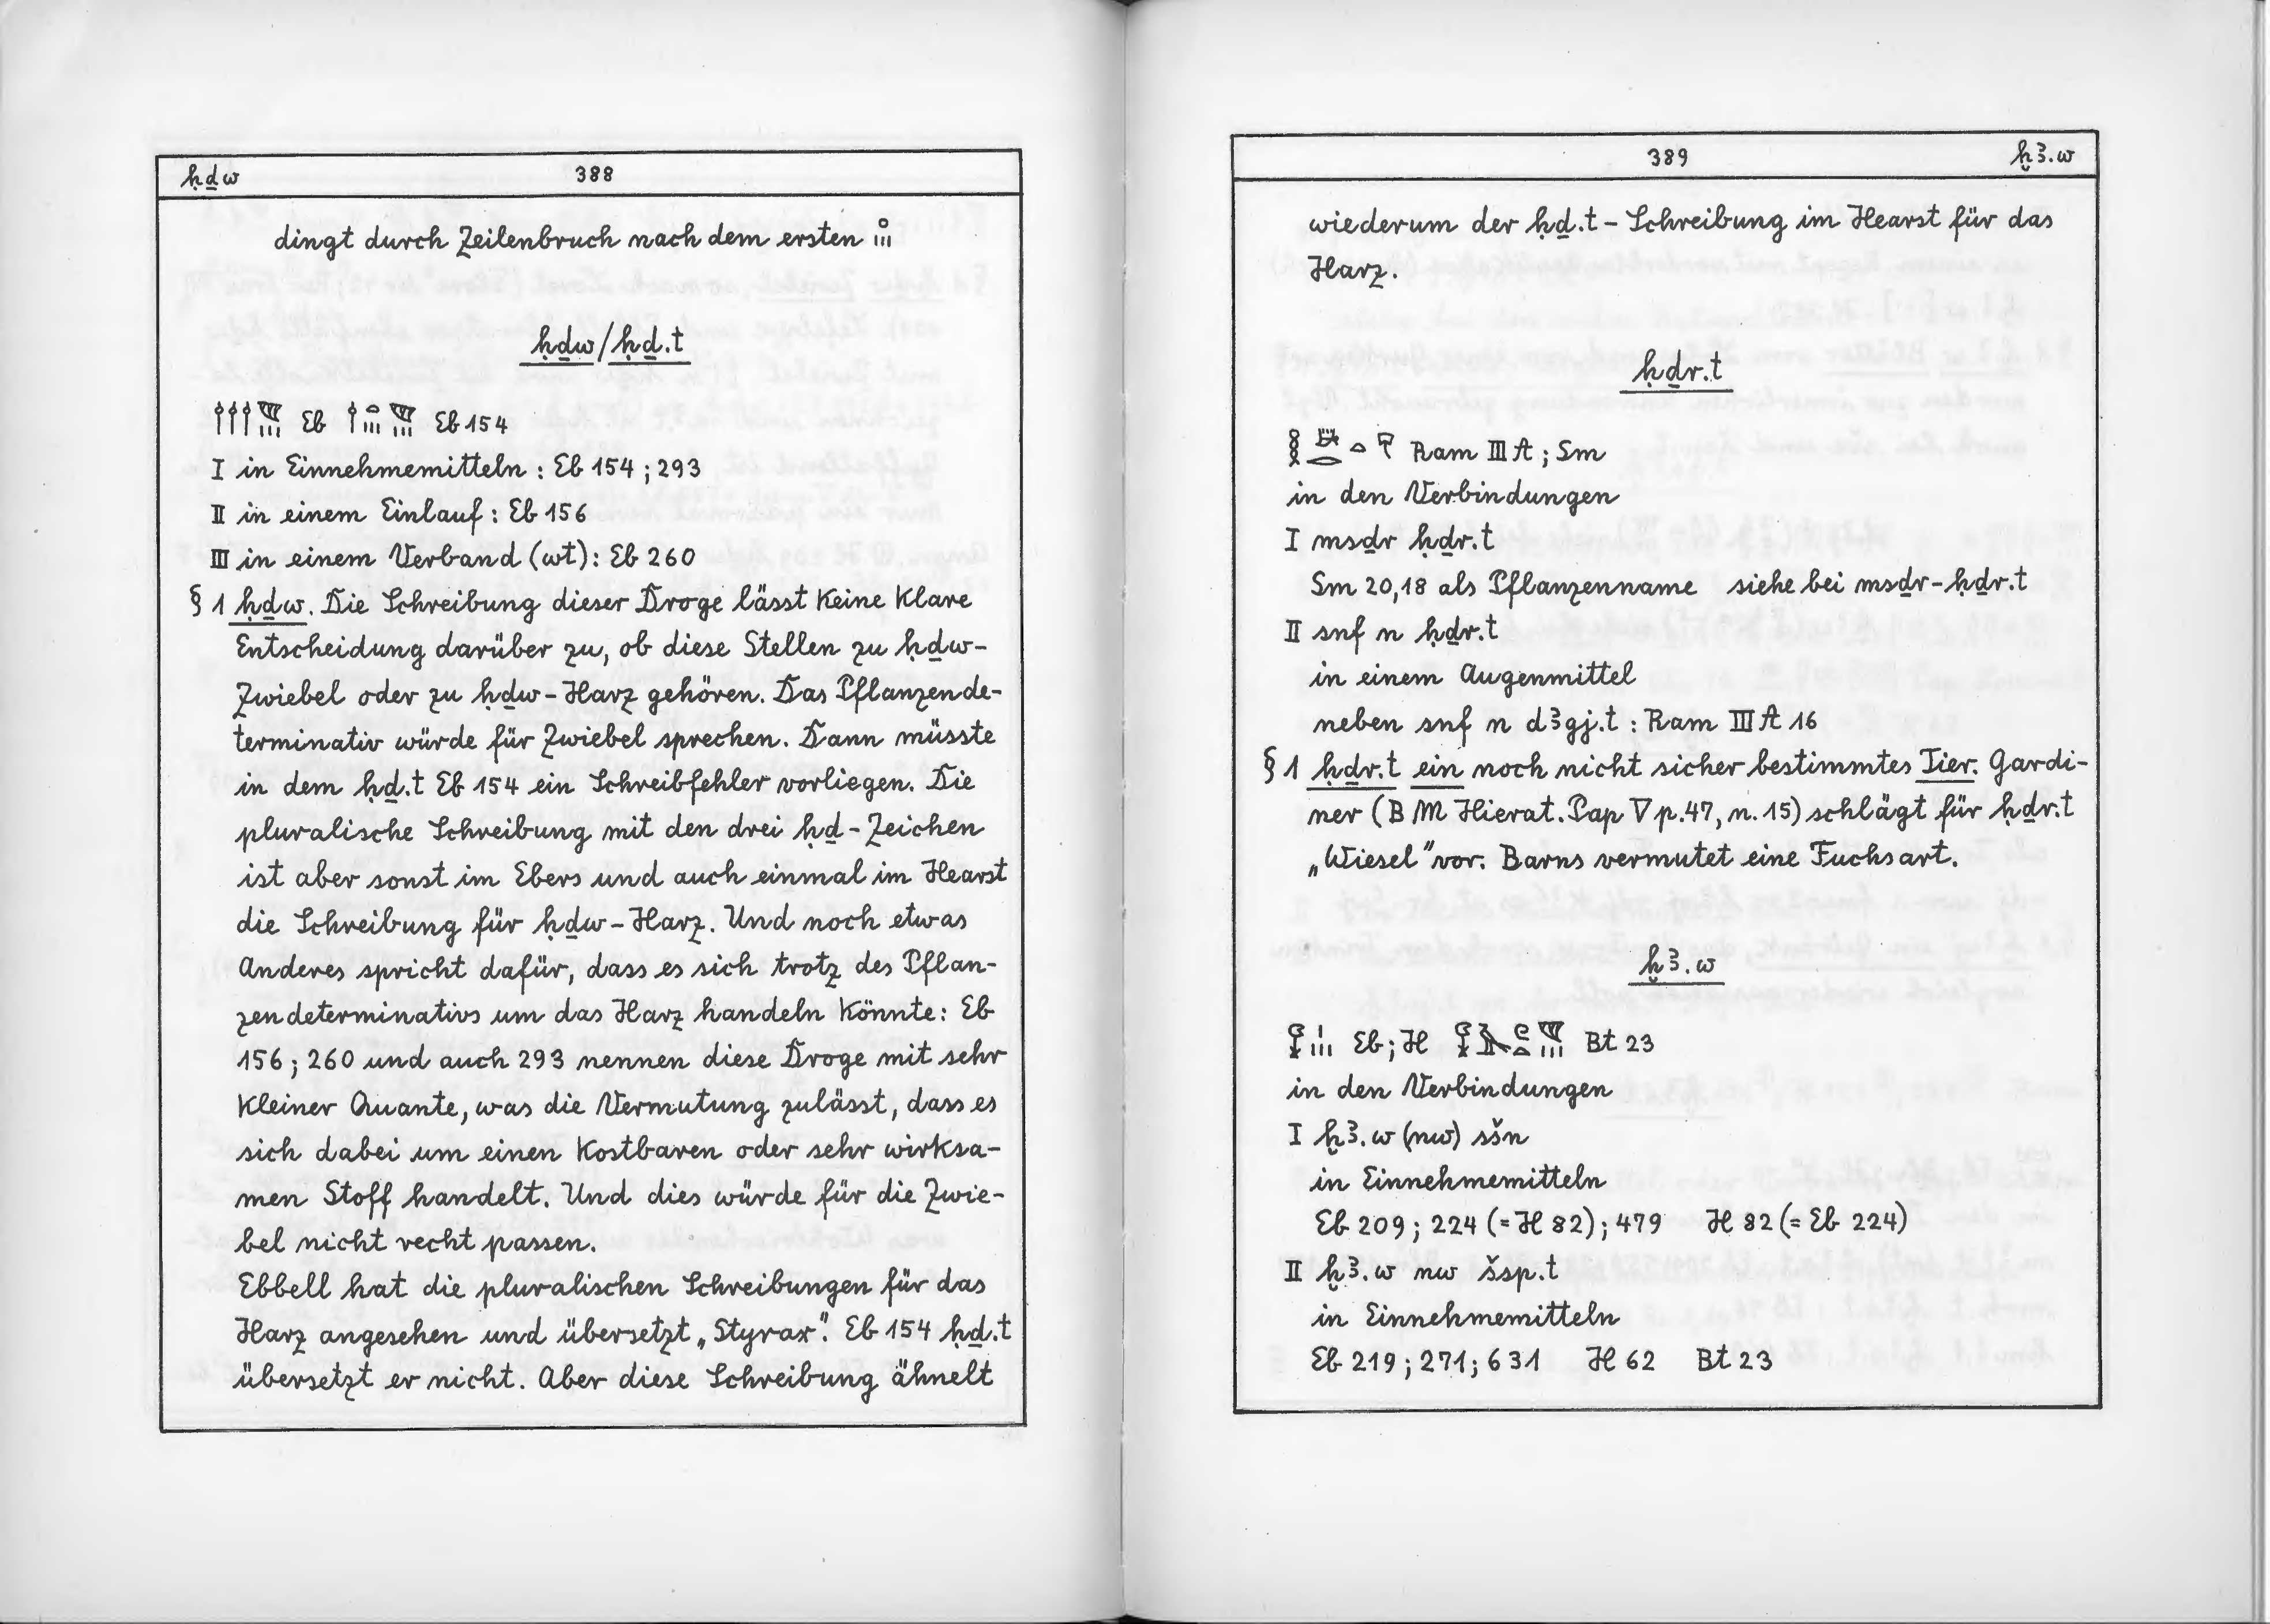 ḥḏw 388
dingt durch Zeilenbruch nach dem ersten
ḥḏw/ḥḏ.t
Eb Eb 154
I in Einnehmemitteln : Eb 154 ; 293
II in einem Einlauf : Eb 156
III in einem Verband (wt) : Eb 260
§ 1 ḥḏw. Die Schreibung dieser Droge lässt keine klare
Entscheidung darüber zu, ob diese Stellen zu ḥḏw-
Zwiebel oder zu ḥḏw-Harz gehören. Das Pflanzende-
terminativ würde für Zwiebel sprechen. Dann müsste
in dem ḥḏ.t Eb 154 ein Schreibfehler vorliegen. Die
pluralische Schreibung mit den drei ḥḏ-Zeichen
ist aber sonst im Ebers und auch einmal im Hearst
die Schreibung für ḥḏw-Harz. Und noch etwas
Anderes spricht dafür, dass es sich trotz des Pflan-
zendeterminativs um das Harz handeln könnte: Eb
156 ; 260 und auch 293 nennen diese Droge mit sehr
kleiner Quante, was die Vermutung zulässt, dass es
sich dabei um einen kostbaren oder sehr wirksa-
men Stoff handelt. Und dies würde für die Zwie-
bel nicht recht passen.
Ebbell hat die pluralischen Schreibungen für das
Harz angesehen und übersetzt „Styrax". Eb 154 ḥḏ.t
übersetzt er nicht. Aber diese Schreibung ähnelt
389 ḫꜣ.w
wiederum der ḥḏ.t-Schreibung im Hearst für das
Harz.
ḥḏr.t
Ram III A ; Sm
in den Verbindungen
I msḏr ḥḏr.t
Sm 20,18 als Pflanzenname siehe bei msḏr-ḥḏr.t
II snf n ḥḏr.t
in einem Augenmittel
neben snf n dꜣgj.t : Ram III A 16
§ 1 ḥḏr.t ein noch nicht sicher bestimmtes Tier. Gardi-
ner (B M Hierat. Pap V p. 47, n. 15) schlägt für ḥḏr.t
„Wiesel" vor. Barns vermutet eine Fuchsart.
ḫꜣ.w
Eb ; H Bt 23
in den Verbindungen
I ḫꜣ.w (nw) sšn
in Einnehmemitteln
Eb 209 ; 224 (= H 82) ; 479 H 82 (= Eb 224)
II ḫꜣ.w nw šsp.t
in Einnehmemitteln
Eb 219 ; 271 ; 631 H 62 Bt 23